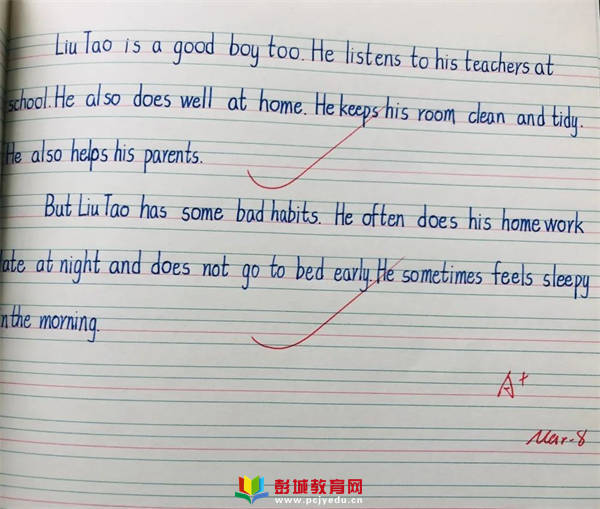 Liu Tao is a good boy too. He listens to his teachers at
school. He also does well at home. He keeps his room clean and tidy.
He also helps his parents.
But Liu Tao has some bad habits. He often does his homework
ate at night and does not go to bed early. He sometimes feels sleepy
n the morning.
A+
Mar-8
彭城教育网
www.pcjyedu.cn